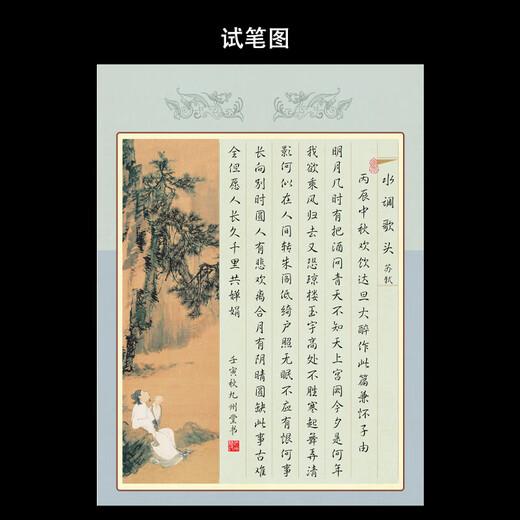 试笔图
水调歌头 苏轼
丙辰中秋欢饮达旦大醉作此篇兼怀子由
明月几时有把酒问青天不知天上宫阙今夕是何年
我欲乘风归去又恐琼楼玉宇高处不胜寒起舞弄清
影何似在人间转朱阁低绮户照无眠不应有恨何事
长向别时圆人有悲欢离合月有阴晴圆缺此事古难
全但愿人长久千里共婵娟
壬寅秋九州堂书